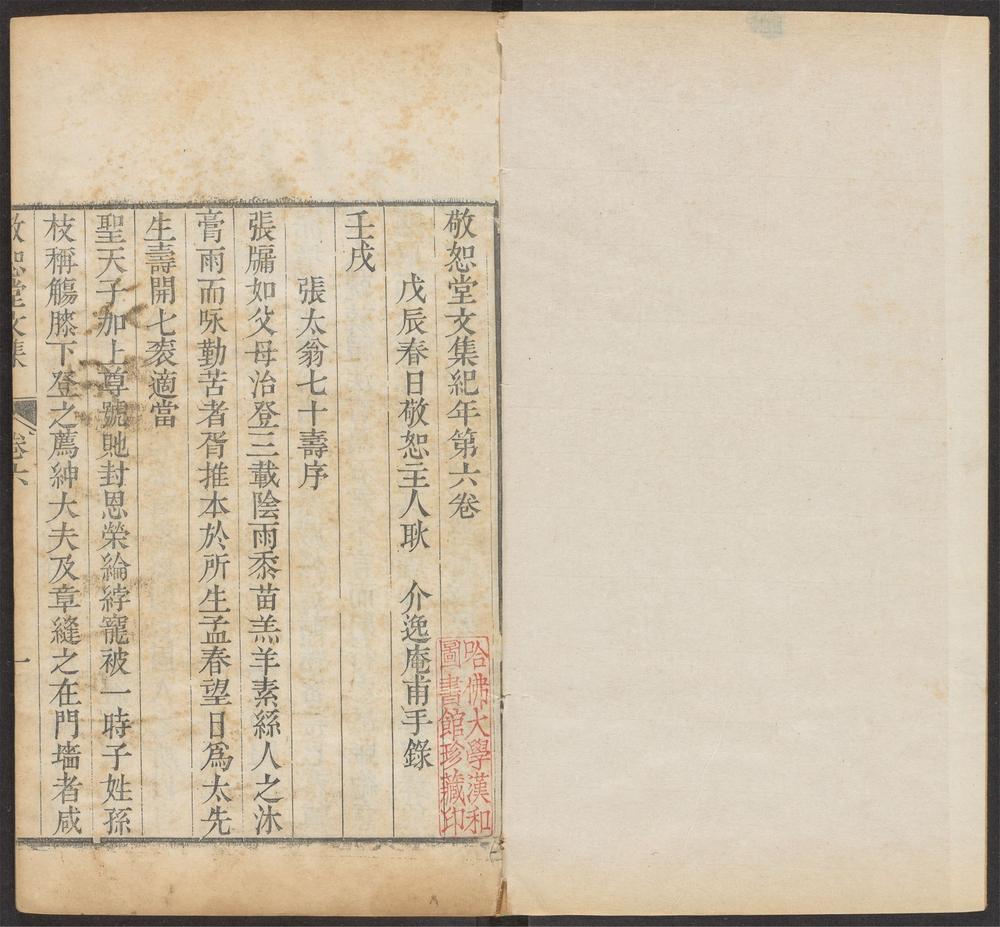 敬恕堂文集紀年第六卷
戊辰春日敬恕主人耿　介逸庵甫手錄
壬戌
張太翁七十壽序
張牖如父母治登三載陰雨黍苗羔羊素絲人之沐
膏雨而咏勤苦者胥推本於所生孟春望日爲太先
生壽開七袠適當
聖天子加上尊號貤封恩榮綸綍寵被一時子姓孫
枝稱觴膝下登之薦紳大夫及章縫之在門墻者咸
敬恕堂文集　卷六　一
哈佛大學漢和
圖書館珍藏印